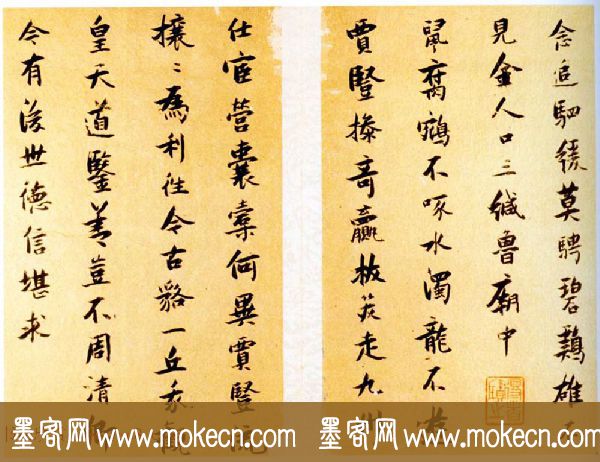 念追駟緩莫騁碧鷄雄
見金人口三緘魯廟中
鼠腐鵷不啄水濁龍不
賈豎操奇贏板築走九州
仕宦營囊橐何異賈豎
攘〻為利往今古貉一丘
皇天道鑒善豈不周清
今有後世德信堪求
墨客网 www.mokecn.com 墨客网 www.mokecn.com